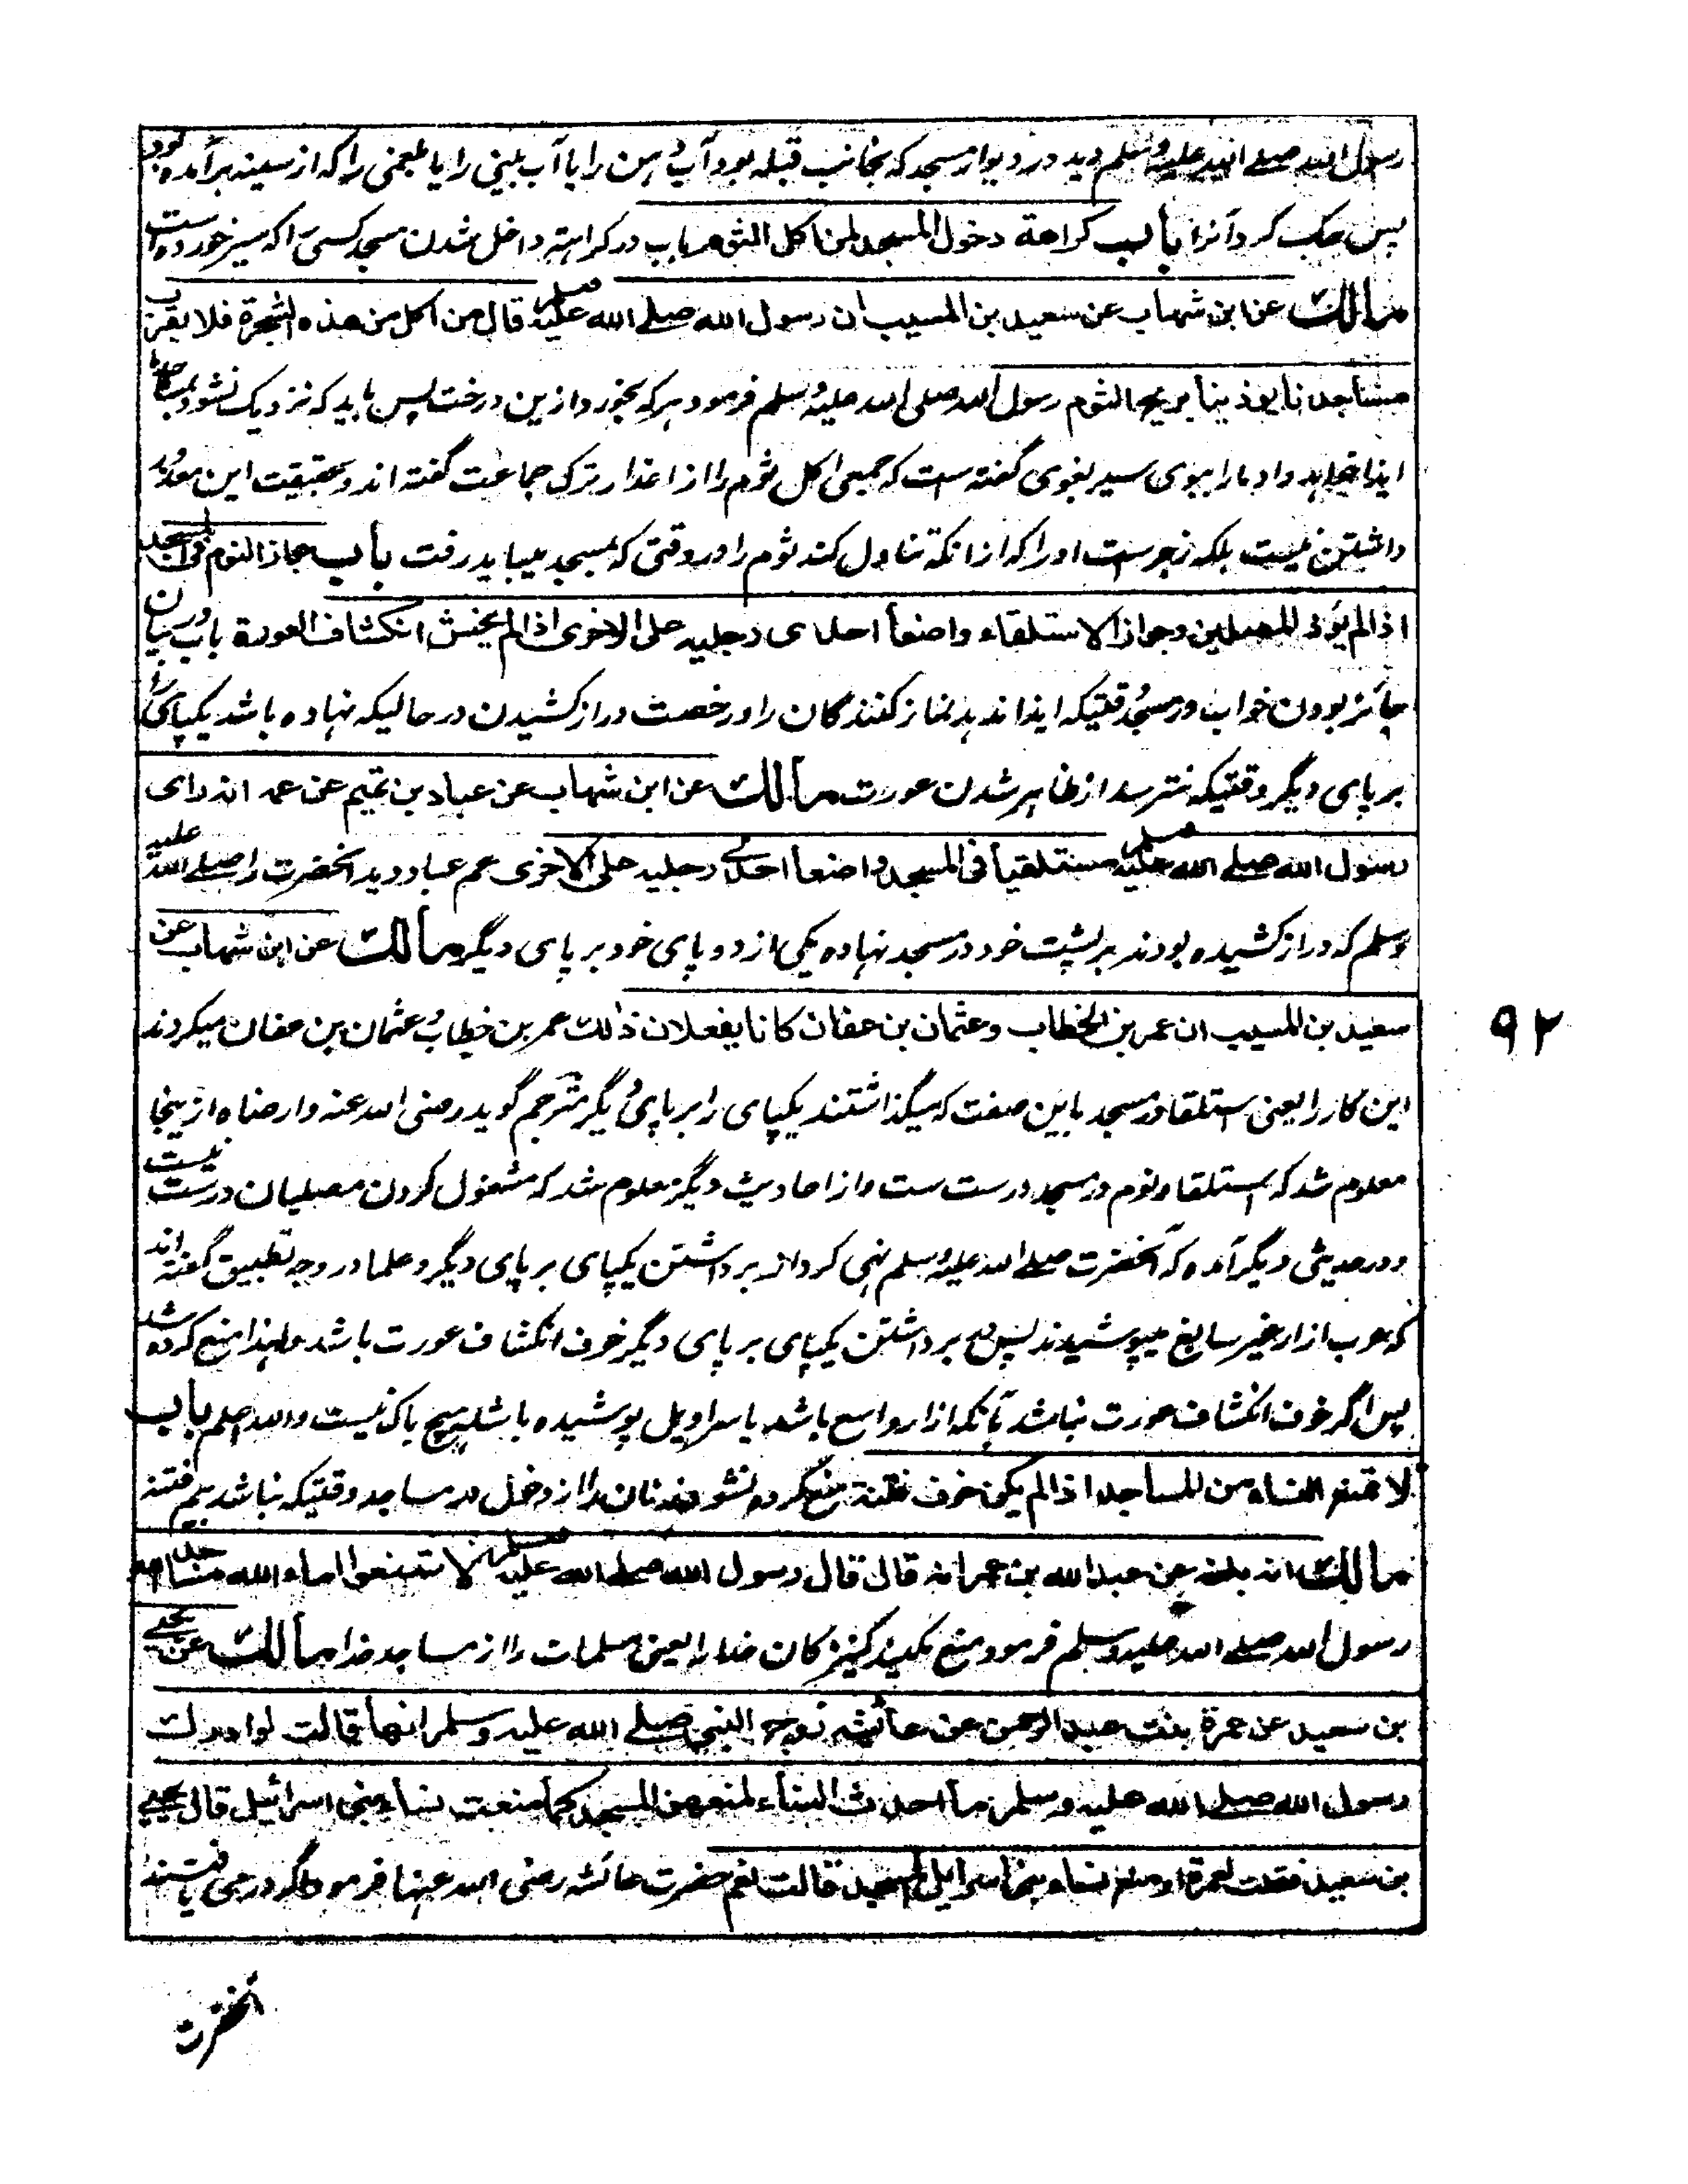 رسول الله صلے الله علیه وسلم دید در دیوار مسجد که بجانب قبله بود آب دهن را یا آب بینی را یا بلغمی را که از سینه برآمده بود
پس حک کرد آنرا باب كراهة دخول المسجد لمن اكل الثوم باب در کراهة داخل شدن مسجد کسی را که سیر خورده است
مالك عن ابن شهاب عن سعيد بن المسيب ان رسول الله صلے الله عليه وسلم قال من اكل من هذه الشجرة فلا يقرب
مساجدنا يوذينا بريح الثوم رسول الله صلی الله علیه وسلم فرمود هر که بخورد ازین درخت پس باید که نزدیک نشود بمساجد ما
ایذا خواهد داد ما را ببوی سیر بغوی گفته ست که جمعی اکل ثوم را از اعذار ترک جماعت گفته اند و بحقیقت این معذور
داشتن نیست بلکه زجرست او را که از انکه تناول کند ثوم را در وقتی که بمسجد میباید رفت باب جواز النوم فی المسجد
اذا لم يؤذ المصلين وجواز الاستلقاء واضعا احدى رجليه على الاخرى اذا لم يخش انكشاف العورة باب در بیان
جائز بودن خواب در مسجد وقتیکه ایذا ندهد نماز کنندگان را و رخصت دراز کشیدن در حالیکه نهاده باشد یکپای را
بر پای دیگر وقتیکه نترسد از ظاهر شدن عورت مالك عن ابن شهاب عن عباد بن تميم عن عمه انه رأى
رسول الله صلے الله عليه وسلم مستلقيا فى المسجد واضعا احدى رجليه على الاخرى عم عباد دید آنحضرت را صلے الله علیه
وسلم که دراز کشیده بودند بر پشت خود در مسجد نهاده یکی از دو پای خود بر پای دیگر مالك عن ابن شهاب عن
سعيد بن المسيب ان عمر بن الخطاب وعثمان بن عفان كانا يفعلان ذالك عمر بن خطاب و عثمان بن عفان میکردند
۹۲
این کار را یعنی استلقا در مسجد باین صفت که میگذاشتند یکپای را بر پای دیگر مترجم گوید رضی الله عنه و ارضاه ازینجا
معلوم شد که استلقا و نوم در مسجد درست ست و از احادیث دیگر معلوم شد که مشغول کردن مصلیان درست نیست
و در حدیثی دیگر آمده که آنحضرت صلے الله علیه وسلم نهی کرد از برداشتن یکپای بر پای دیگر و علما در وجه تطبیق گفته اند
که عرب ازار غیر سابغ میپوشیدند پس در برداشتن یکپای بر پای دیگر خوف انکشاف عورت باشد ولهذا منع کرده شد
پس اگر خوف انکشاف عورت نباشد بآنکه ازار واسع باشد یا سراویل پوشیده باشد هیچ باک نیست والله اعلم باب
لا تمنع النساء من المساجد اذا لم يكن خوف فتنة منع کرده نشوند زنان را از دخول در مساجد وقتیکه نباشد بیم فتنه
مالك انه بلغه عن عبد الله بن عمر انه قال قال رسول الله صلے الله عليه وسلم لا تمنعوا اماء الله مساجد الله
رسول الله صلے الله علیه وسلم فرمود منع مکنید کنیزکان خدا را یعنی مسلمات را از مساجد خدا مالك عن يحيى
بن سعيد عن عمرة بنت عبد الرحمن عن عائشه زوجه النبي صلے الله عليه وسلم انها قالت لو ادرك
رسول الله صلے الله عليه وسلم ما احدث النساء لمنعهن المسجد كما منعت نساء بنى اسرائيل قال يحيى
بن سعيد فقلت لعمرة او منع نساء بنى اسرائيل المسجد قالت نعم حضرت عائشه رضی الله عنها فرمود اگر در می یافتند
آنحضرت